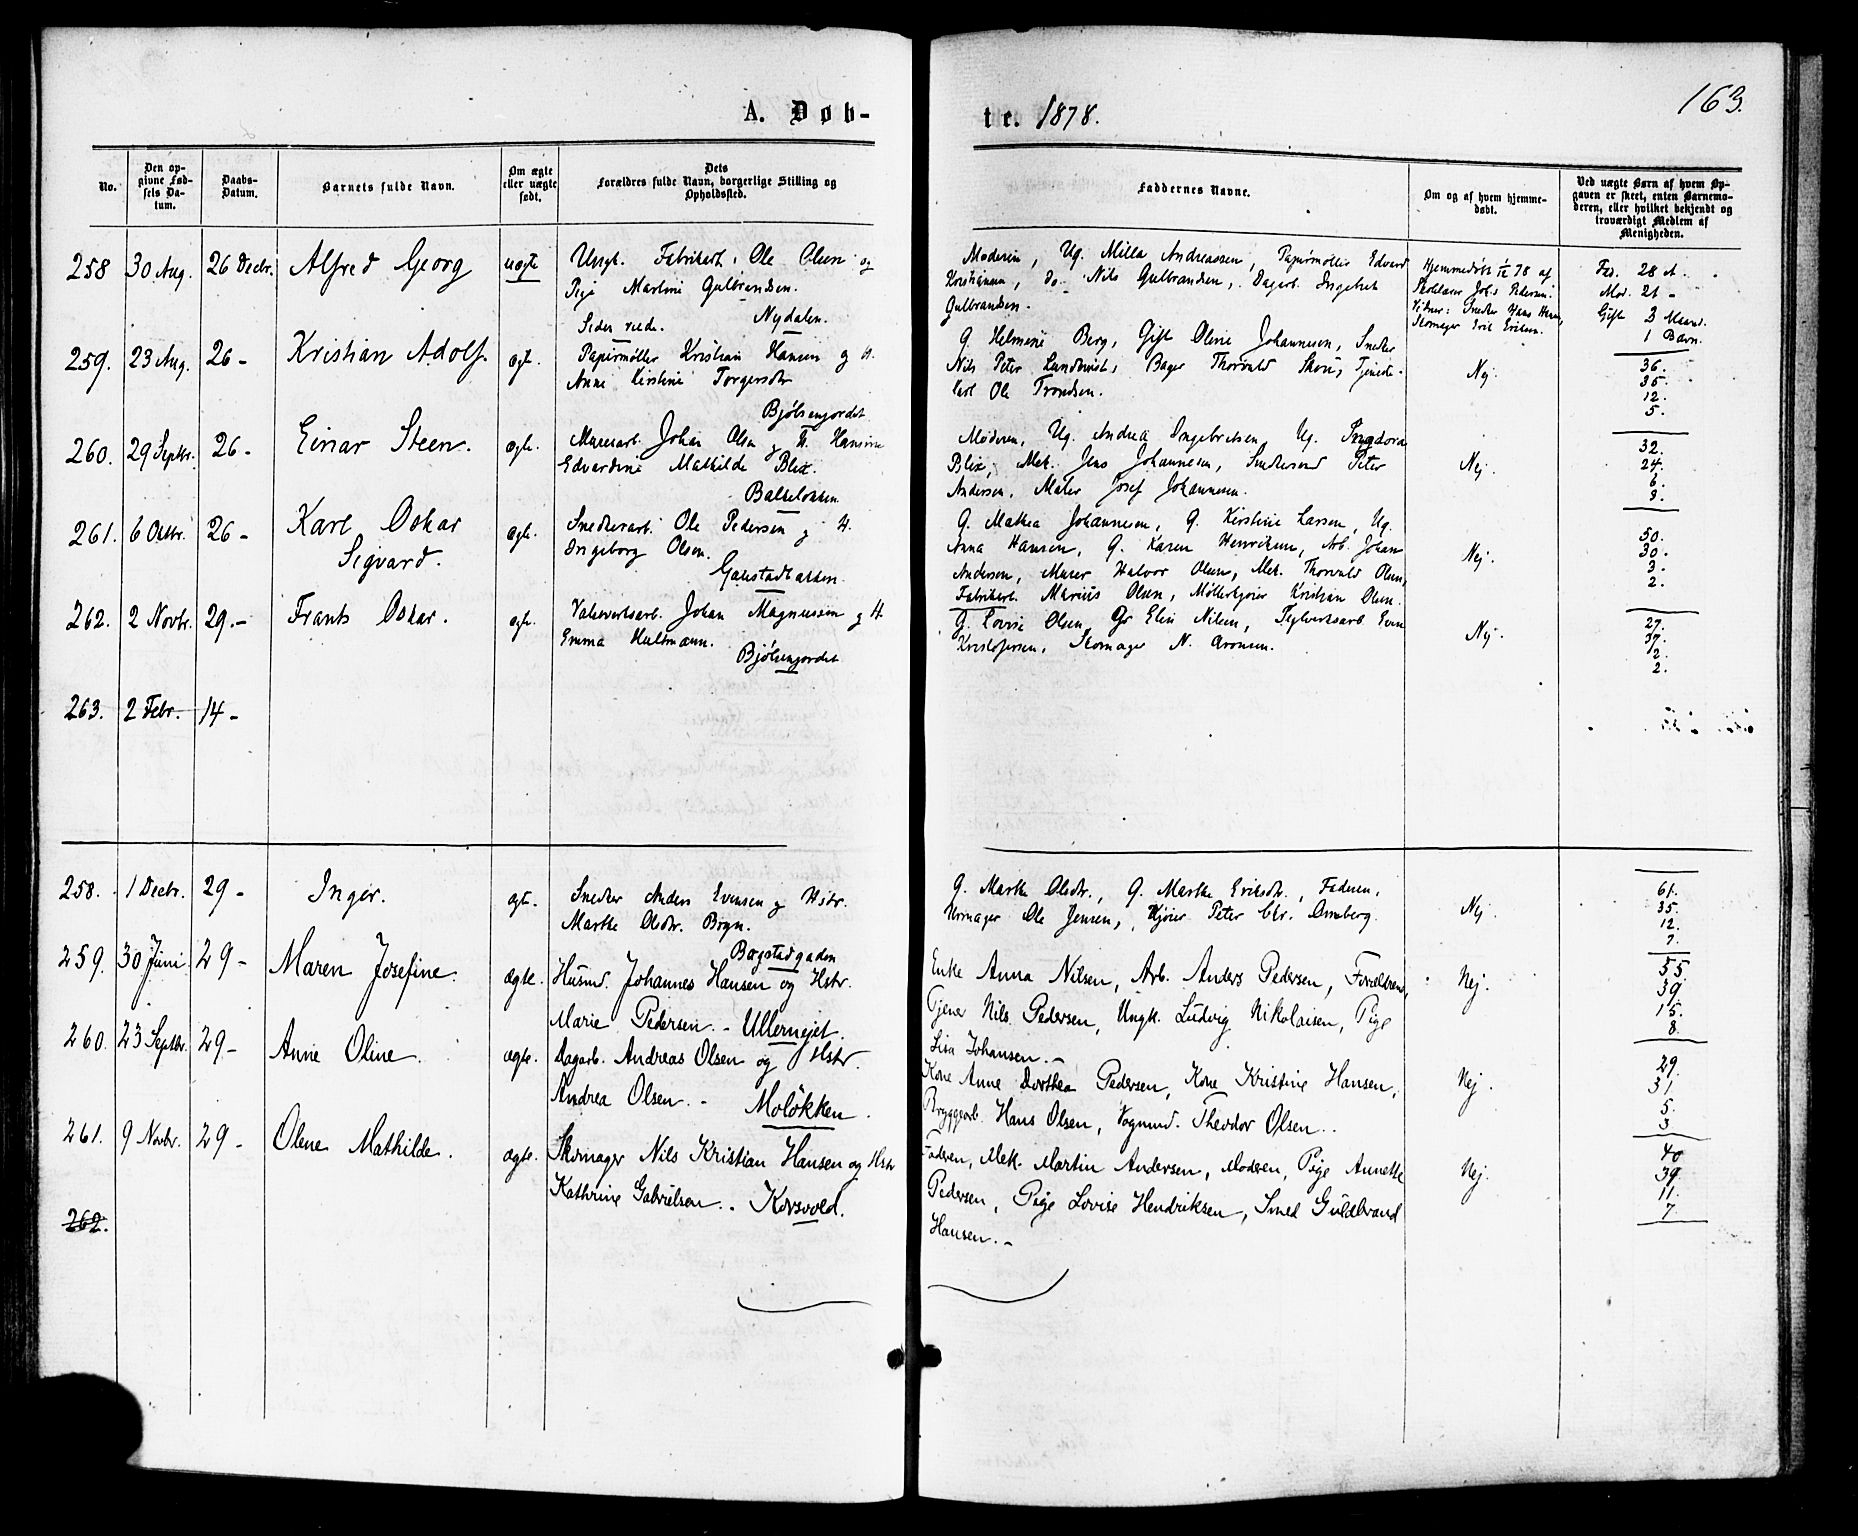 163.
A. Døb-
te. 1878.
No.
Den op-
givne Fød-
sels Da-
tum.
Daabs-
Datum.
Barnets fulde Navn.
Om ægte
eller uægte
født.
Dets
Forældres fulde Navn, borgerlige Stilling og
Opholdssted.
Faddernes Navne.
Om og af hvem hjemme-
døbt.
Ved uægte Børn af hvem Op-
gaven er skeet, enten Barnemo-
deren, eller hvilket bekjendt og
troværdigt Medlem af
Menigheden.
258 30 Aug. 26 Decbr. Alfred Georg uægte
Ungk. Fabrikarb. Ole Olsen og
Pige Martine Gulbrandsen.
Nydalen.
Moderen, Ug. Milla Andreassen, Papirmøller Edvard
Kristiansen, do. Nils Gulbrandsen, Dagarb. Ingebret
Gulbrandsen.
Hjemmedøbt 78 af
Skolelærer Johs Pedersen.
Vidner: Snedker Hans
Skomager Erik Eriksen.
Fad. 28 A.
Mod. 21 -
Gift 3 Maand.
1 Barn.
259. 23 Aug. 26 - Kristian Adolf. ægte.
Papirmøller Kristian Hansen og H.
Anne Kirstine Torgersdtr
Bjølsenjordet
G. Helmine Berg, Gift Oline Johannesen, Snedker
Nils Peter Lundqvist, Bager Thorvald Skou, Tjeneste-
karl Ole Trondsen.
Nej.
36.
35.
12.
5.
260. 29 Septbr. 26 - Einar Steen. ægte.
Murerarb. Johan Olsen og H. Hansine
Edvardine Mathilde Blix.
Balkeløkken
Moderen, Ug. Andrea Ingebretsen, Ug. Ingdora
Blix, Mek. Jens Johannesen, Snedkersvend Peter
Andersen, Maler Josef Johannesen.
Nej.
32.
24.
6.
3.
261. 6 Octbr. 26 - Karl Oskar
Sigvard. ægte.
Snedkerarb. Ole Pedersen og H.
Ingeborg Olsen.
Gaustadbakken.
G. Mathea Johannesen, G. Kirstine Larsen, Ug.
Anna Hansen, G. Karen Henriksen, Arb. Johan
Andersen, Murer Halvor Olsen, Mek. Thorvald Olsen,
Fabrikarb. Marius Olsen, Møllerkjører Kristian Olsen.
Nej.
50.
30.
3.
2.
262. 2 Novbr. 29. - Frants Oskar. ægte.
Valseverksarb. Johan Magnussen og H.
Emma Hultmann.
Bjølsenjordet
G. Lovise Olsen, Gr Elen Nilsen, Teglverksarb Even
Kristofersen, Skomager N. Aronsen.
Nej.
27.
37.
2.
2.
263. 2 Febr. 14 -
258. 1 Decbr. 29 - Inger. ægte.
Snedker Anders Evensen og Hstr.
Marthe Olsdtr. Bryn.
Bogstadgaden
G. Marthe Olsdtr., G. Marthe Eriksdtr., Faderen,
Urmager Ole Jensen, Kjører Peter Chr. Omberg.
Nej.
61.
35.
12.
7.
259. 30 Juni 29 - Maren Josefine. ægte.
Husmd. Johannes Hansen og Hstr.
Marie Pedersen. - Ullernejet.
Enke Anna Nilsen, Arb. Anders Pedersen, Forældrene,
Tjener Nils Pedersen, Ungk. Ludvig Nikolaisen, Pige
Lisa Johansen. -
Nej.
55.
39.
15.
8.
260. 23 Septbr. 29 - Anne Oline. ægte.
Dagarb. Andreas Olsen og Hstr.
Andrea Olsen. - Moløkken.
Kone Anne Dorthea Pedersen, Kone Kristine Hansen,
Bryggarb. Hans Olsen, Vognmd. Theodor Olsen.
Nej.
29.
31.
5.
3.
261. 9 Novbr. 29 - Olene Mathilde. ægte.
Skomager Nils Kristian Hansen og Hstr
Kathrine Gabrielsen. Korsvold.
Faderen, Mek. Martin Andersen, Moderen, Pige Annette
Pedersen, Pige Lovise Hendriksen, Smed Guldbrand
Hansen. -
Nej.
40
39.
11.
7.
262.